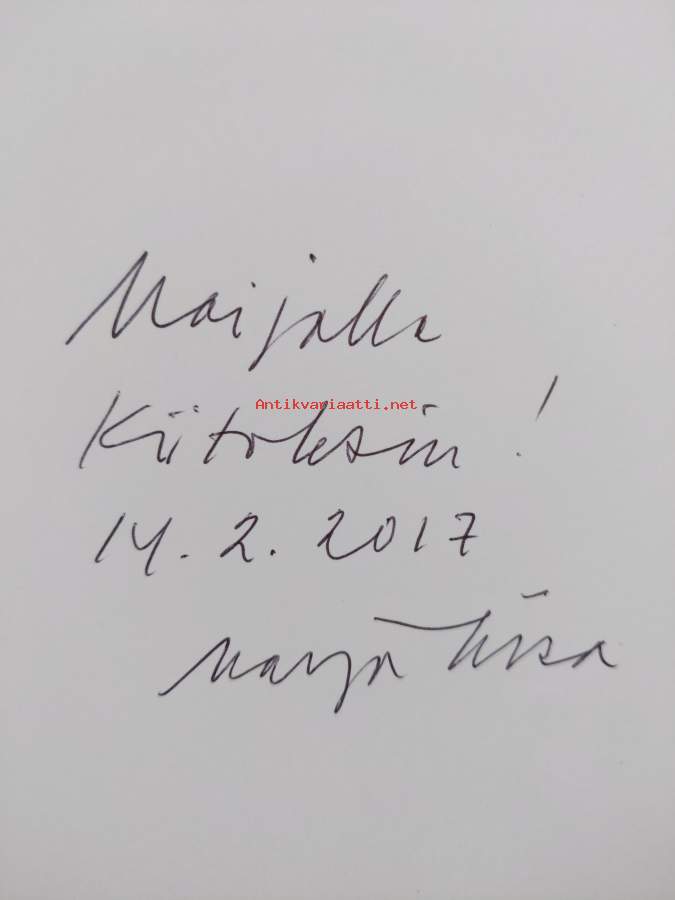 Maijalle
Antikvariaatti.net
Kiitoksin!
14.2.2017
Marja